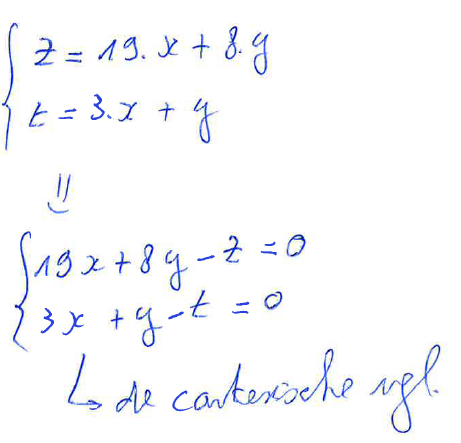 z = 19.x + 8.y
t = 3.x + y
⇓
19x + 8y - z = 0
3x + y - t = 0
↳ de cartesische vgl.